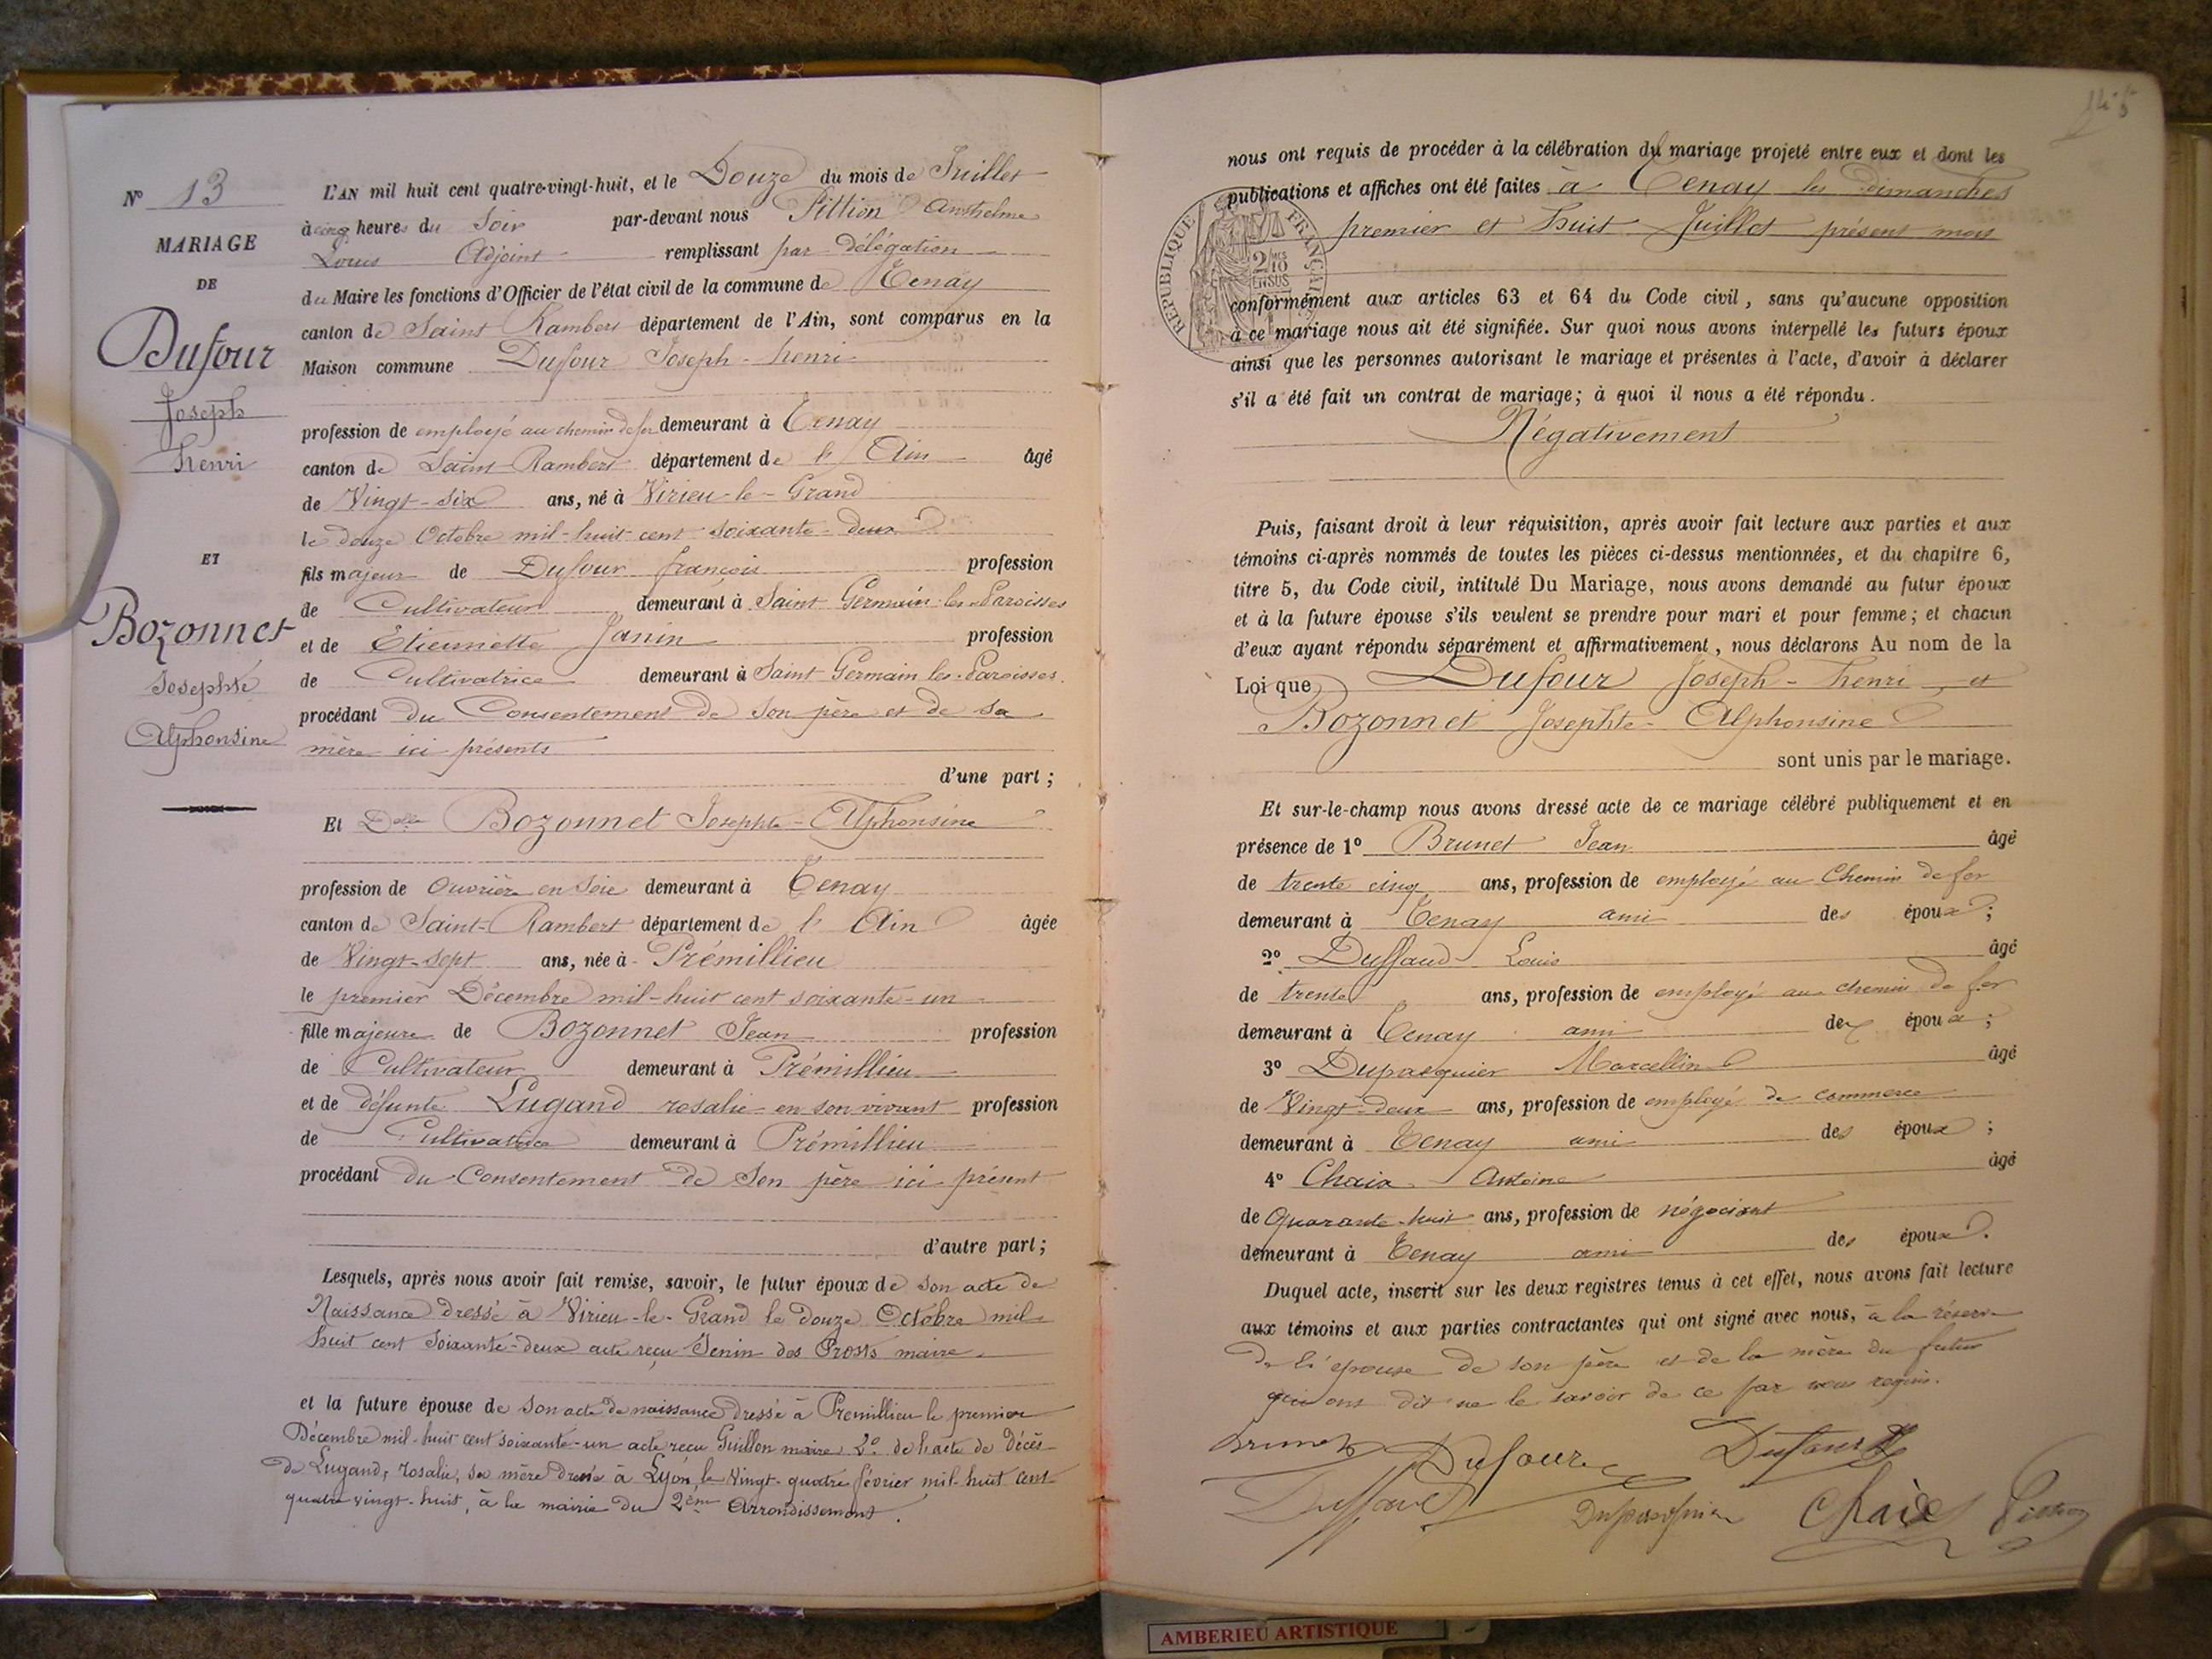 N° 13
MARIAGE
DE
Dufour
Joseph
henri
ET
Bozonnet
Josephte
Alphonsine
L'AN mil huit cent quatre-vingt-huit, et le Douze du mois de Juillet
à cinq heures du Soir par-devant nous Pittion Anthelme
Louis Adjoint remplissant par délégation
du Maire les fonctions d'Officier de l'état civil de la commune de Tenay
canton de Saint Rambert département de l'Ain, sont comparus en la
Maison commune Dufour Joseph-henri
profession de employé au chemin de fer demeurant à Tenay
canton de Saint-Rambert département de l'Ain âgé
de Vingt-six ans, né à Virieu-le-Grand
le douze Octobre mil-huit-cent soixante-deux
fils majeur de Dufour françois profession
de Cultivateur demeurant à Saint Germain-les-Paroisses
et de Etiennette Janin profession
de Cultivatrice demeurant à Saint Germain les-Paroisses.
procédant du Consentement de son père et de sa
mère ici présents
d'une part ;
Et Delle Bozonnet Josephte-Alphonsine
profession de Ouvrière en Soie demeurant à Tenay
canton de Saint-Rambert département de l'Ain âgée
de Vingt-sept ans, née à Prémillieu
le premier Décembre mil-huit cent soixante-un
fille majeure de Bozonnet Jean profession
de Cultivateur demeurant à Prémillieu
et de défunte Lugand rosalie en son vivant profession
de Cultivatrice demeurant à Prémillieu
procédant du Consentement de Son père ici présent
d'autre part ;
Lesquels, après nous avoir fait remise, savoir, le futur époux de son acte de
Naissance dressé à Virieu-le-Grand le douze Octobre mil
huit cent soixante-deux acte reçu Jenin des Prosts maire
et la future épouse de son acte de naissance dressé à Premillieu le premier
Décembre mil-huit cent soixante-un acte reçu Guillon maire 2° de l'acte de Décès
de Lugand, rosalie, sa mère dressé à Lyon, le Vingt-quatre février mil-huit cent
quatre vingt-huit, à la mairie du 2ème Arrondissement.
nous ont requis de procéder à la célébration du mariage projeté entre eux et dont les
publications et affiches ont été faites à Tenay les dimanches
premier et huit Juillet présent mois
RÉPUBLIQUE FRANÇAISE
2/10
EN SUS
conformément aux articles 63 et 64 du Code civil, sans qu'aucune opposition
à ce mariage nous ait été signifiée. Sur quoi nous avons interpellé les futurs époux
ainsi que les personnes autorisant le mariage et présentes à l'acte, d'avoir à déclarer
s'il a été fait un contrat de mariage; à quoi il nous a été répondu.
Négativement
Puis, faisant droit à leur réquisition, après avoir fait lecture aux parties et aux
témoins ci-après nommés de toutes les pièces ci-dessus mentionnées, et du chapitre 6,
titre 5, du Code civil, intitulé Du Mariage, nous avons demandé au futur époux
et à la future épouse s'ils veulent se prendre pour mari et pour femme; et chacun
d'eux ayant répondu séparément et affirmativement, nous déclarons Au nom de la
Loi que Dufour Joseph-henri, et
Bozonnet Josephte-Alphonsine
sont unis par le mariage.
Et sur-le-champ nous avons dressé acte de ce mariage célébré publiquement et en
présence de 1° Brunet Jean âgé
de trente cinq ans, profession de employé au Chemin de fer
demeurant à Tenay ami des époux ;
2° Duffaud Louis âgé
de trente ans, profession de employé au chemin de fer
demeurant à Tenay ami des époux ;
3° Dupasquier Marcellin âgé
de Vingt-deux ans, profession de employé de commerce
demeurant à Tenay ami des époux ;
4° Chaix Antoine âgé
de Quarante-huit ans, profession de négociant
demeurant à Tenay ami des époux.
Duquel acte, inscrit sur les deux registres tenus à cet effet, nous avons fait lecture
aux témoins et aux parties contractantes qui ont signé avec nous, à la réserve
de l'épouse de son père et de la mère du futur
qui ont dit ne le savoir de ce par nous requis.
Brunet Dufour Dufour H
Duffaud Dupasquier Chaix Pittion
AMBERIEU ARTISTIQUE